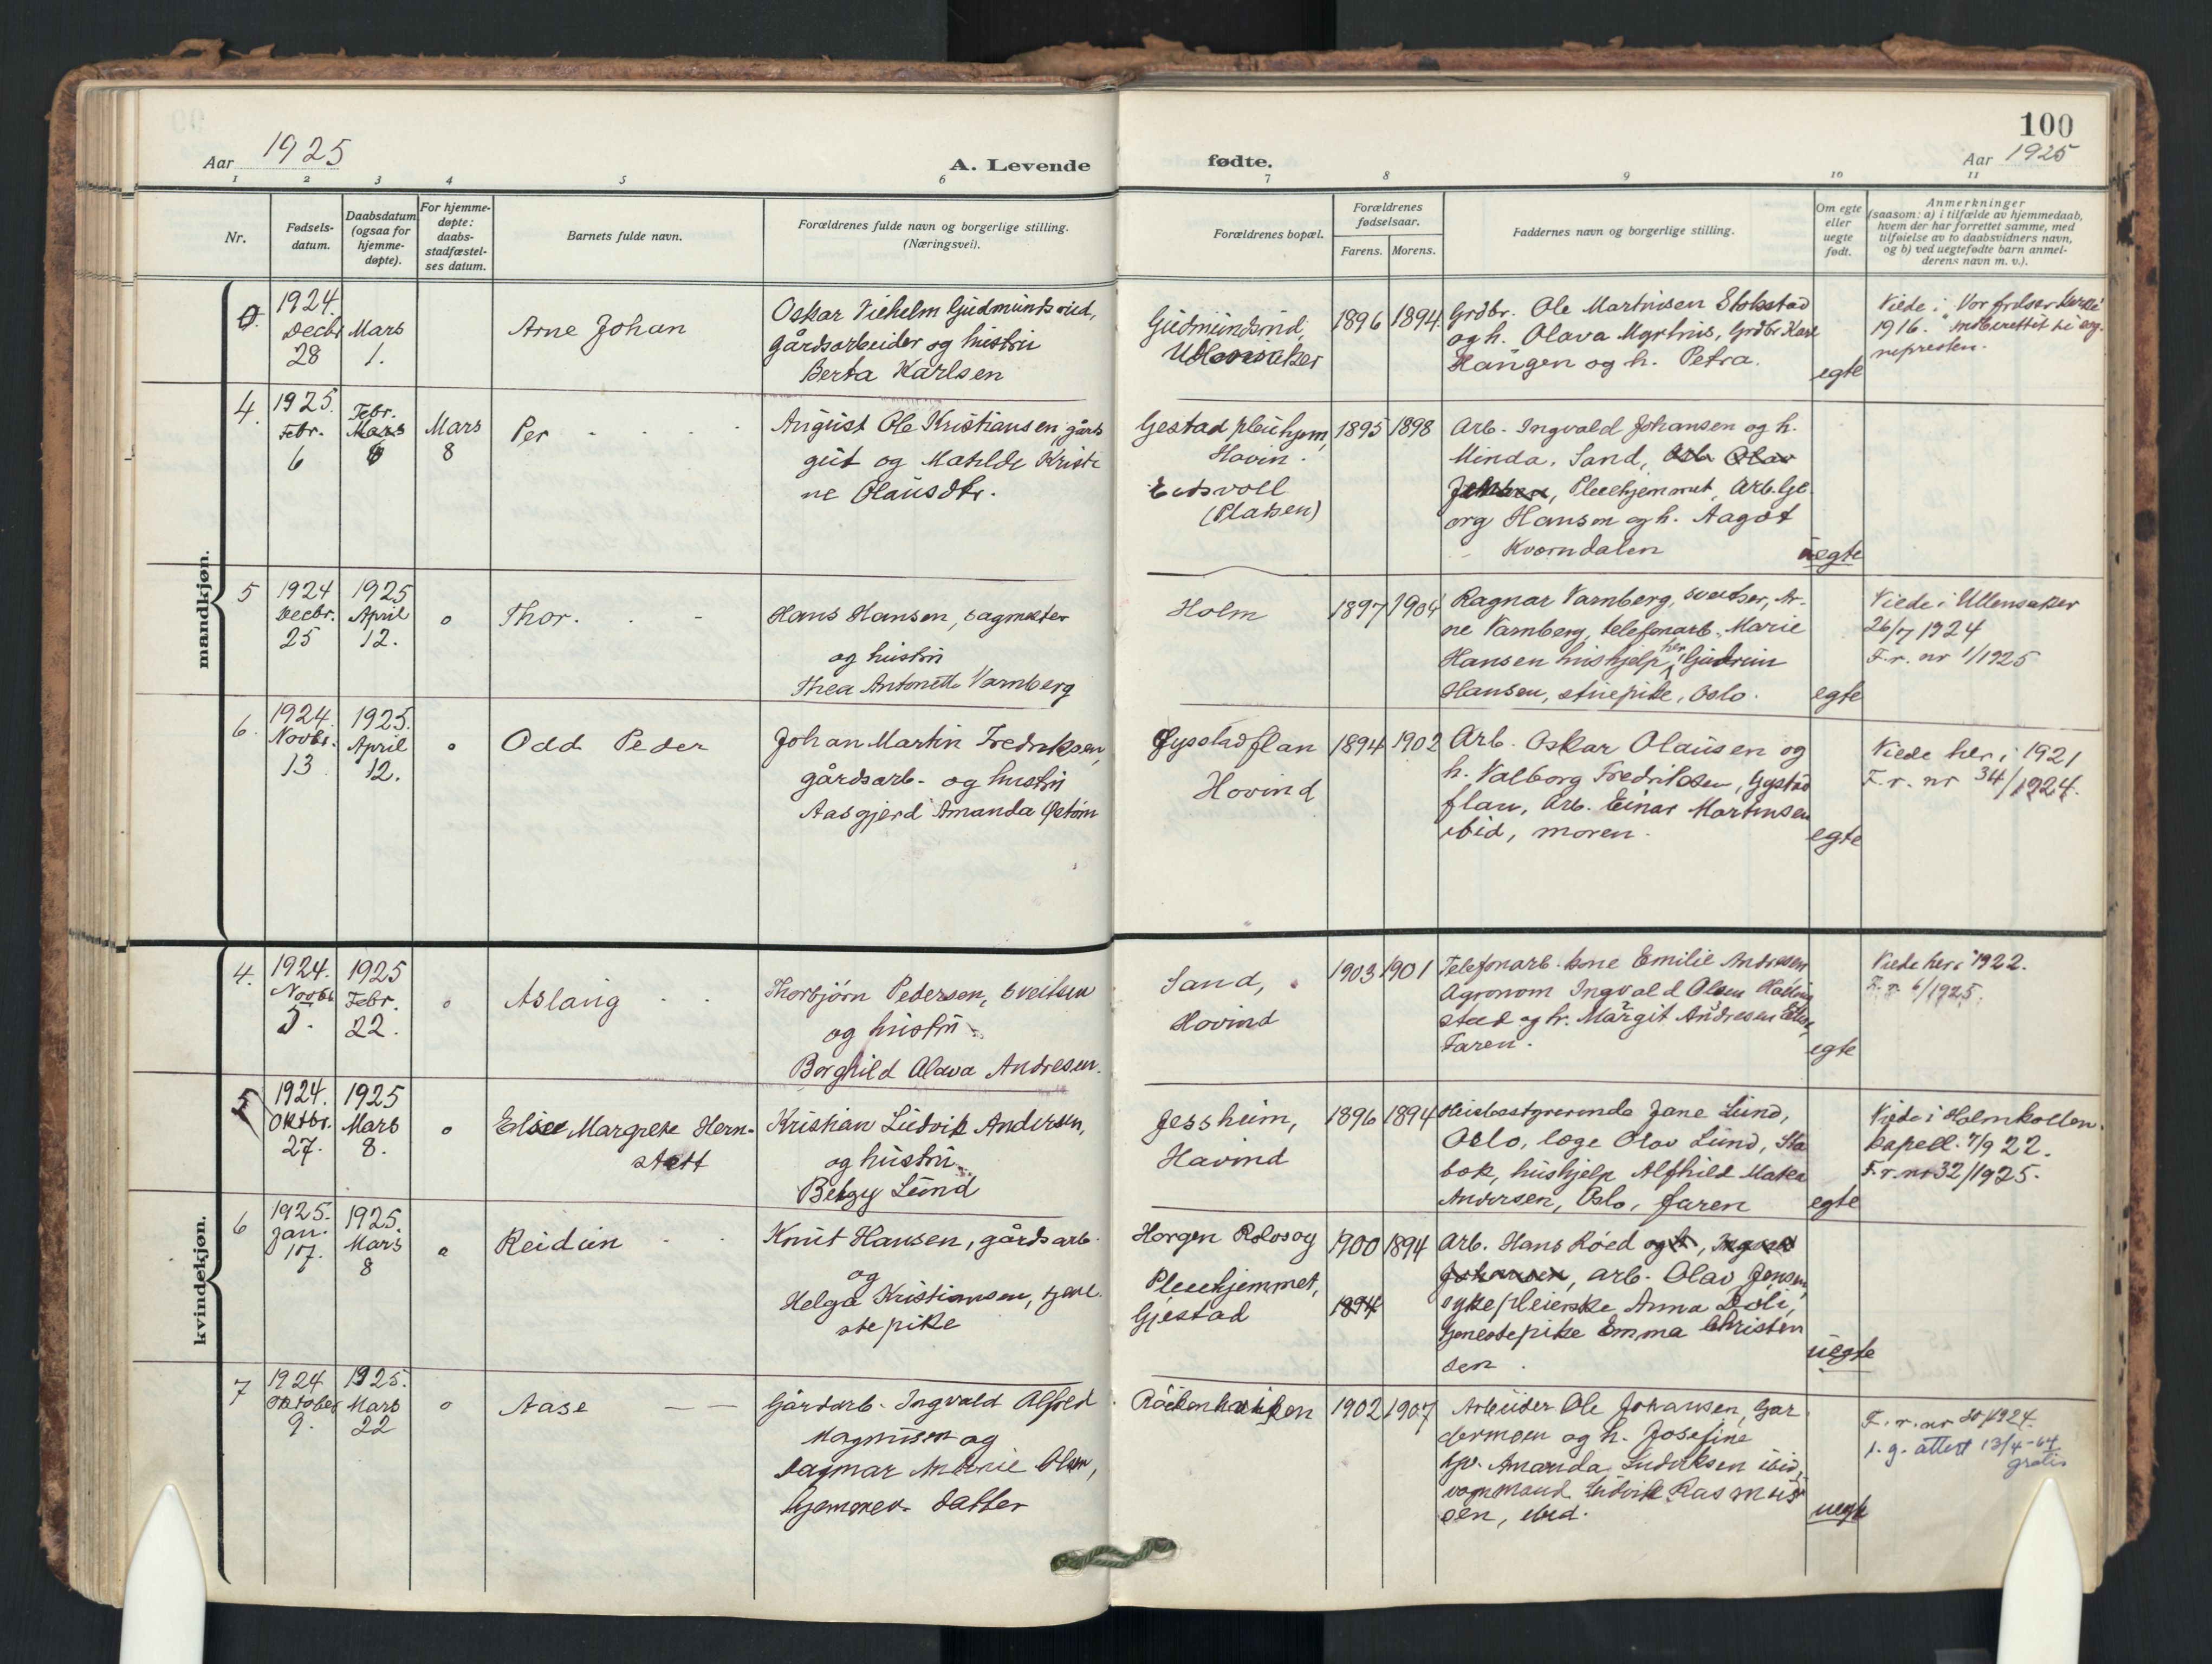 100
Aar 1925
A. Levende
fødte.
Aar 1925
1 2 3 4 5 6 7 8 9 10 11
Nr.
Fødsels-
datum.
Daabsdatum
(ogsaa for
hjemme-
døpte).
For hjemme-
døpte:
daabs-
stadfæstel-
ses datum.
Barnets fulde navn.
Forældrenes fulde navn og borgerlige stilling.
(Næringsvei).
Forældrenes bopæl.
Forældrenes
fødselsaar.
Farens. Morens.
Faddernes navn og borgerlige stilling.
Om egte
eller
uegte
født.
Anmerkninger
(saasom: a) i tilfælde av hjemmedaab,
hvem der har forrettet samme, med
tilføielse av to daabsvidners navn,
og b) ved uegtefødte barn anmel-
derens navn m. v.).
mandkjøn.
0.
1924.
Decbr
28
Mars
1.
Arne Johan
Oskar Vilhelm Gudmundsrud,
gårdsarbeider og hustru
Berta Karlsen
Gudmundsrud,
Ullensaker
1896
1894
Grdbr. Ole Martinsen Stokstad
og h. Olava Martinus, Grdbr. Karl
Haugen og h. Petra.
egte
Viede i Vor frelsers kirke
1916.
4.
1925.
Febr.
6
Febr.
Mars
Mars
8
Per
August Ole Kristiansen, gårds
gut og Matilde Kristi
ne Olausdtr.
Gestad pleiehjem,
Hovin.
Eidsvoll
(Platsen)
1895
1898
Arb. Ingvald Johansen og h.
Minda, Sand, Arb. Olav
Jensen, Pleiehjemmet, Arb. Ge
org Hansen og h. Aagot
Kværndalen
uegte
5
1924
Decbr.
25
1925
April
12.
o
Thor.
Hans Hansen, sagmester
og hustru
Thea Antonette Varnberg
Holm
1897
1904
Ragnar Varnberg, sveitser, Ar-
ne Varnberg, telefonarb., Marie
Hansen hushjelp her, Gudrun
Hansen, stuepike, Oslo.
egte
Viede i Ullensaker
26/7 1924
F.r. nr 1/1925
6.
1924.
Novbr.
13
1925.
April
12.
o
Odd Peder
Johan Martin Fredriksen,
gårdsarb. og hustru
Aasgjerd Amanda Østom
Gystadflan
Hovind
1894
1902
Arb. Oskar Olausen og
h. Valborg Fredriksen, Gystad
flan, Arb. Einar Martinsen
ibid, moren.
egte
Viede her i 1921
F.r. nr 34/1924.
kvindekjøn.
4.
1924.
Novbr
5.
1925
Febr.
22.
o
Aslaug
Thorbjørn Pedersen, sveitser
og hustru
Borghild Olava Andresen.
Sand,
Hovind
1903
1901
Telefonarb. kone Emilie Andresen
Agronom Ingvald Olsen
stad og fr. Margit Andresen
Faren.
egte
Viede her i 1922.
F.r. 6/1925.
5
1924.
Oktbr.
27.
1925
Mars
8.
o
Elise Margrete Hern-
stett
Kristian Ludvik Andersen,
og hustru
Betzy Lund
Jessheim,
Hovind
1896
1894
Husbestyrerinde Jane Lund,
Oslo, læge Olav Lund, Sta
bæk, hushjelp Alfhild
Andersen, Oslo, faren
egte
Viede i Holmkollen
kapell. 7/9 22.
F.r. nr 32/1925.
6
1925.
Jan.
17.
1925.
Mars
8
o
Reidun
Knut Hansen, gårdsarb.
og
Helga Kristiansen, tjene
stepike
Horgen
Pleiehjemmet,
Gjestad
1900
1894
1894
Arb. Hans Røed og h, Ingvald
Johansen, arb. Olav Jensen,
sykepleierske Anna Doli,
tjenestepike Emma Christen
sen.
uegte
7
1924
Oktober
9.
1925.
Mars
22
o
Aase
Gårdarb. Ingvald Alfred
Magnusen og
Dagmar Antonie Olsen,
hjemmev. datter
1902
1907
Arbeider Ole Johansen, Gar
dermoen og h. Josefine
Amanda Ludviksen ibid,
vognmand Ludvik Rasmus
sen, ibid.
uegte
F.r. nr 1924.
s.g. attest 13/4-64
gratis